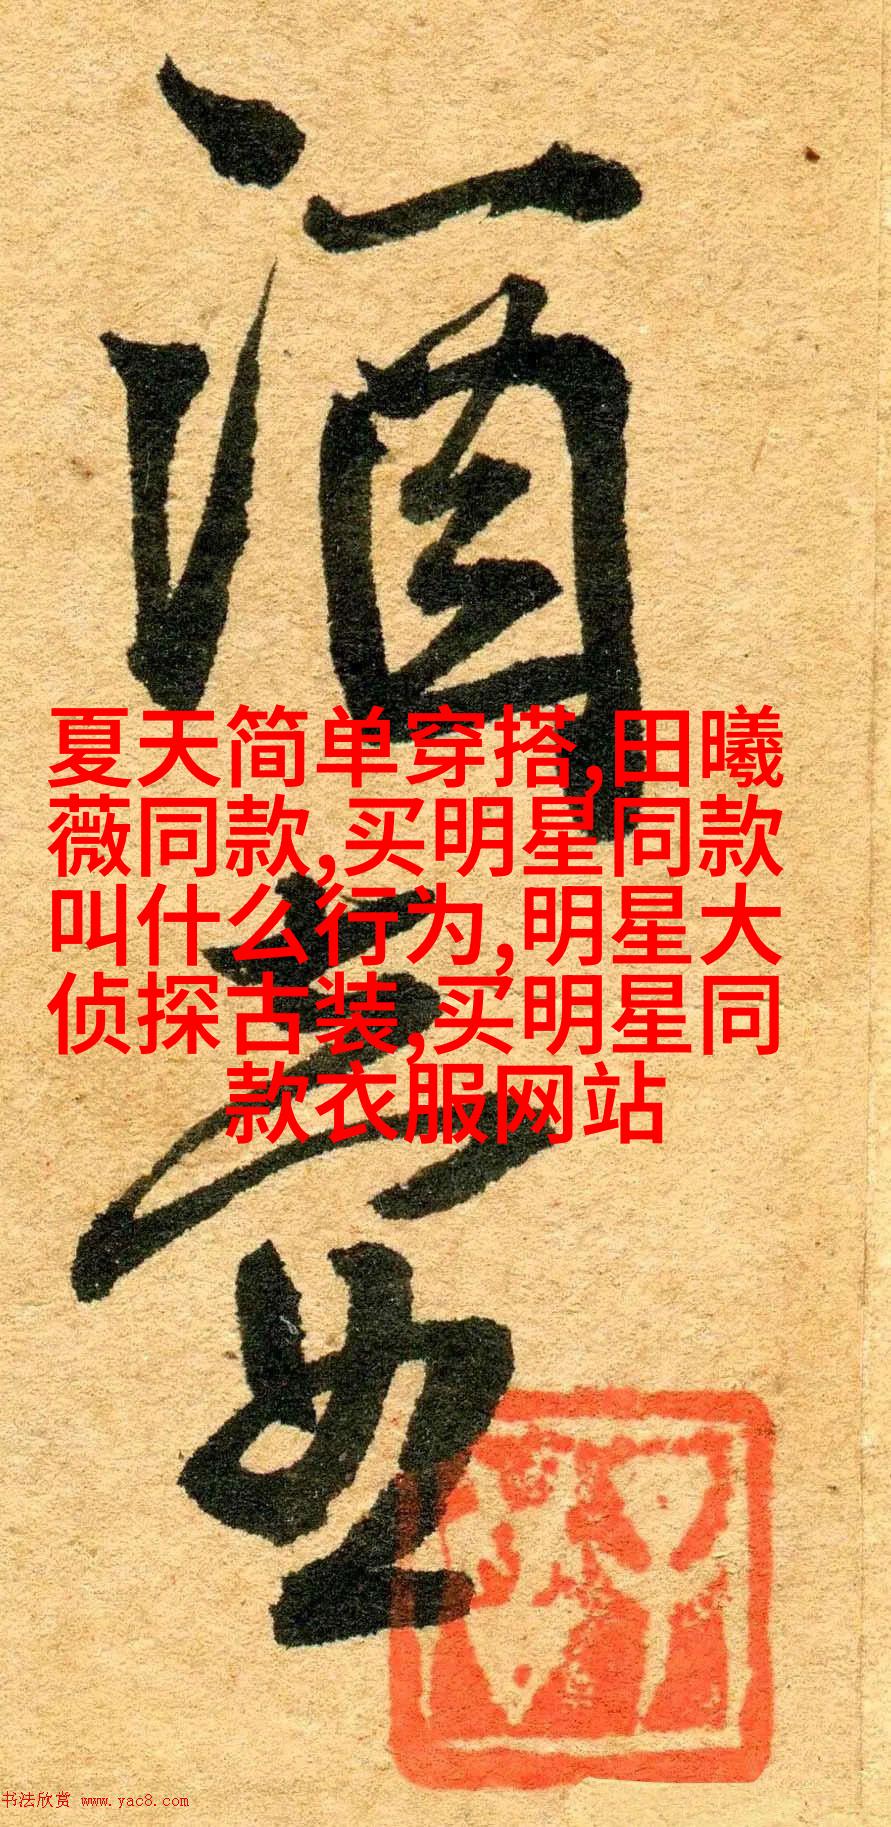 酒
夏天简单穿搭,田曦
薇同款,买明星同款
叫什么行为,明星大
侦探古装,买明星同
款衣服网站
书法欣赏 www.yac8.com